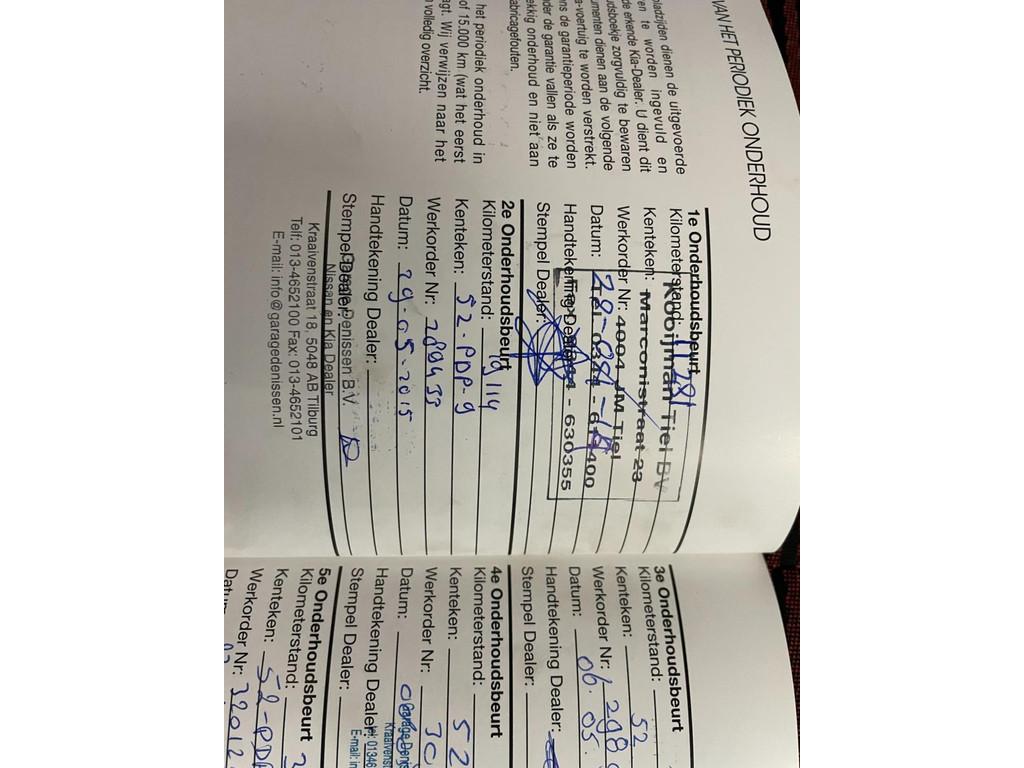 VAN HET PERIODIEK ONDERHOUD
bladzijden dienen de uitgevoerde
te worden ingevuld en
de erkende Kia-Dealer. U dient dit
zorgvuldig te bewaren
dienen aan de volgende
te worden verstrekt.
de garantieperiode worden
de garantie vallen als ze te
onderhoud en niet aan
het periodiek onderhoud in
of 15.000 km (wat het eerst
Wij verwijzen naar het
volledig overzicht.
1e Onderhoudsbeurt
Kilometerstand: 11281
Kenteken:
Werkorder Nr:
Datum:
Handtekening Dealer:
Stempel Dealer:
Kooijman Tiel BV
Marconistraat 23
4004 JM Tiel
Tel 0344 -
- 630355
2e Onderhoudsbeurt
Kilometerstand: 19114
Kenteken: 52-PDP-9
Werkorder Nr: 289433
Datum: 29-05-2015
Handtekening Dealer:
Stempel Dealer:
Garage Denissen B.V.
Nissan en Kia Dealer
Kraaivenstraat 18, 5048 AB Tilburg
Telf: 013-4652100 Fax: 013-4652101
E-mail: info@garagedenissen.nl
3e Onderhoudsbeurt
Kilometerstand:
Kenteken: 52
Werkorder Nr: 298
Datum: 06.05.
Handtekening Dealer:
Stempel Dealer:
4e Onderhoudsbeurt
Kilometerstand:
Kenteken: 52
Werkorder Nr: 30
Datum:
Handtekening Dealer:
Stempel Dealer:
5e Onderhoudsbeurt
Kilometerstand:
Kenteken: 52-PDP
Werkorder Nr: 32012